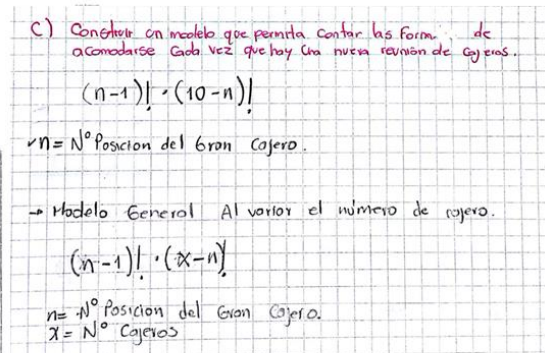 c) Construir un modelo que permita contar las form. de
acomodarse cada vez que hay una nueva reunión de cajeros.
(n-1)! · (10-n)!
n= N° Posicion del Gran Cajero.
→ Modelo General Al variar el número de cajero.
(n-1)! · (x-n)!
n= N° Posicion del Gran Cajero.
x= N° Cajeros